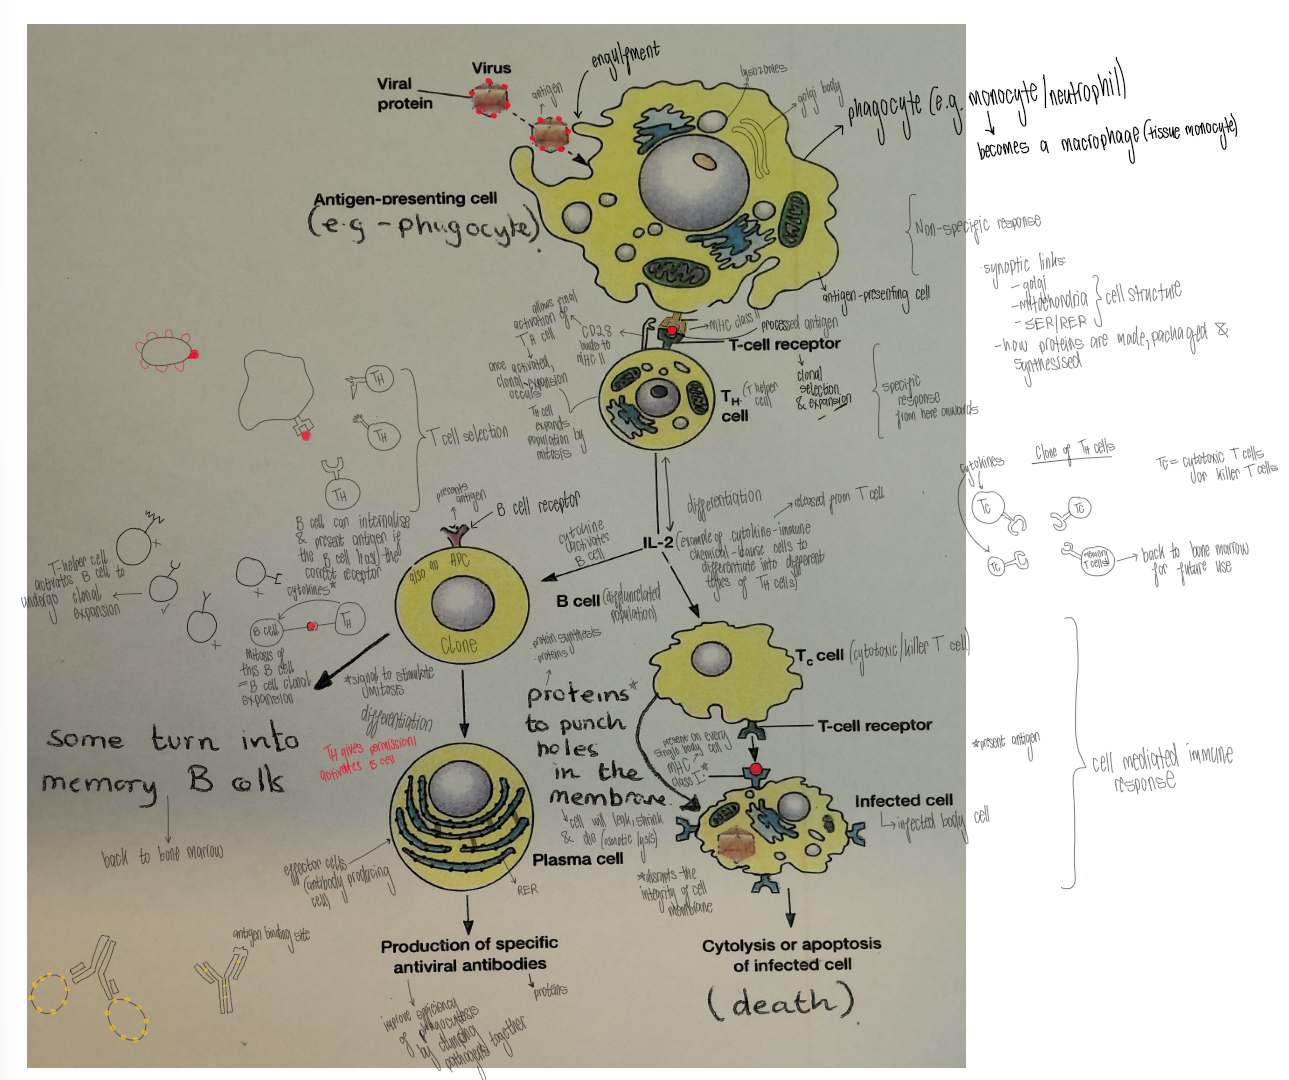 engulfment
Virus
Viral
protein
antigen
lysozomes
golgi body
phagocyte (e.g. monocyte/neutrophil)
becomes a macrophage (tissue monocyte)
Antigen-presenting cell
(e.g - phagocyte).
Non-specific response
·synoptic links
- golgi
- mitochondria
- SER/RER
cell structure
- how proteins are made, packaged &
synthesised
antigen-presenting cell
allows final
activation of
TH cell
CD28
binds to
MHC II
MHC class II
processed antigen
T-cell receptor
once activated,
clonal expansion
occurs
TH cell
expands
population by
mitosis
TH
cell
(T helper
cell)
clonal
selection
& expansion
specific
response
from here onwards
TH
TH
TH
T cell selection
cytokines
Clone of TH cells
TC = cytotoxic T cells
or killer T cells
TC
TC
memory
T cells
back to bone marrow
for future use
presents
antigen
B cell receptor
differentiation
released from T cell
cytokine
activates
B cell
IL-2
(example of cytokine-immune
chemical - cause cells to
differentiate into different
types of TH cells)
B cell can internalise
& present antigen if
the B cell has the
correct receptor
T-helper cell
activates B cell to
undergo clonal
expansion
cytokines*
B cell
TH
mitosis of
this B cell
= B cell clonal
expansion
also an APC
Clone
B cell
*signal to stimulate
mitosis
differentiation
TH gives permission/
activates B cell
some turn into
memory B cells
back to bone marrow
·protein synthesis
·proteins
proteins*
to punch
holes
in the
membrane.
cell will leak, shrink
& die (osmotic lysis)
*disrupts the
integrity of cell
membrane
Tc cell (cytotoxic/killer T cell)
T-cell receptor
present on every
single body cell
MHC
class I*
*present antigen
cell mediated immune
response
Infected cell
infected body cell
Plasma cell
RER
effector cells
(antibody producing
cell)
antigen binding site
Production of specific
antiviral antibodies
proteins
improve efficiency
of phagocytosis
by clumping
pathogens together
Cytolysis or apoptosis
of infected cell
(death).